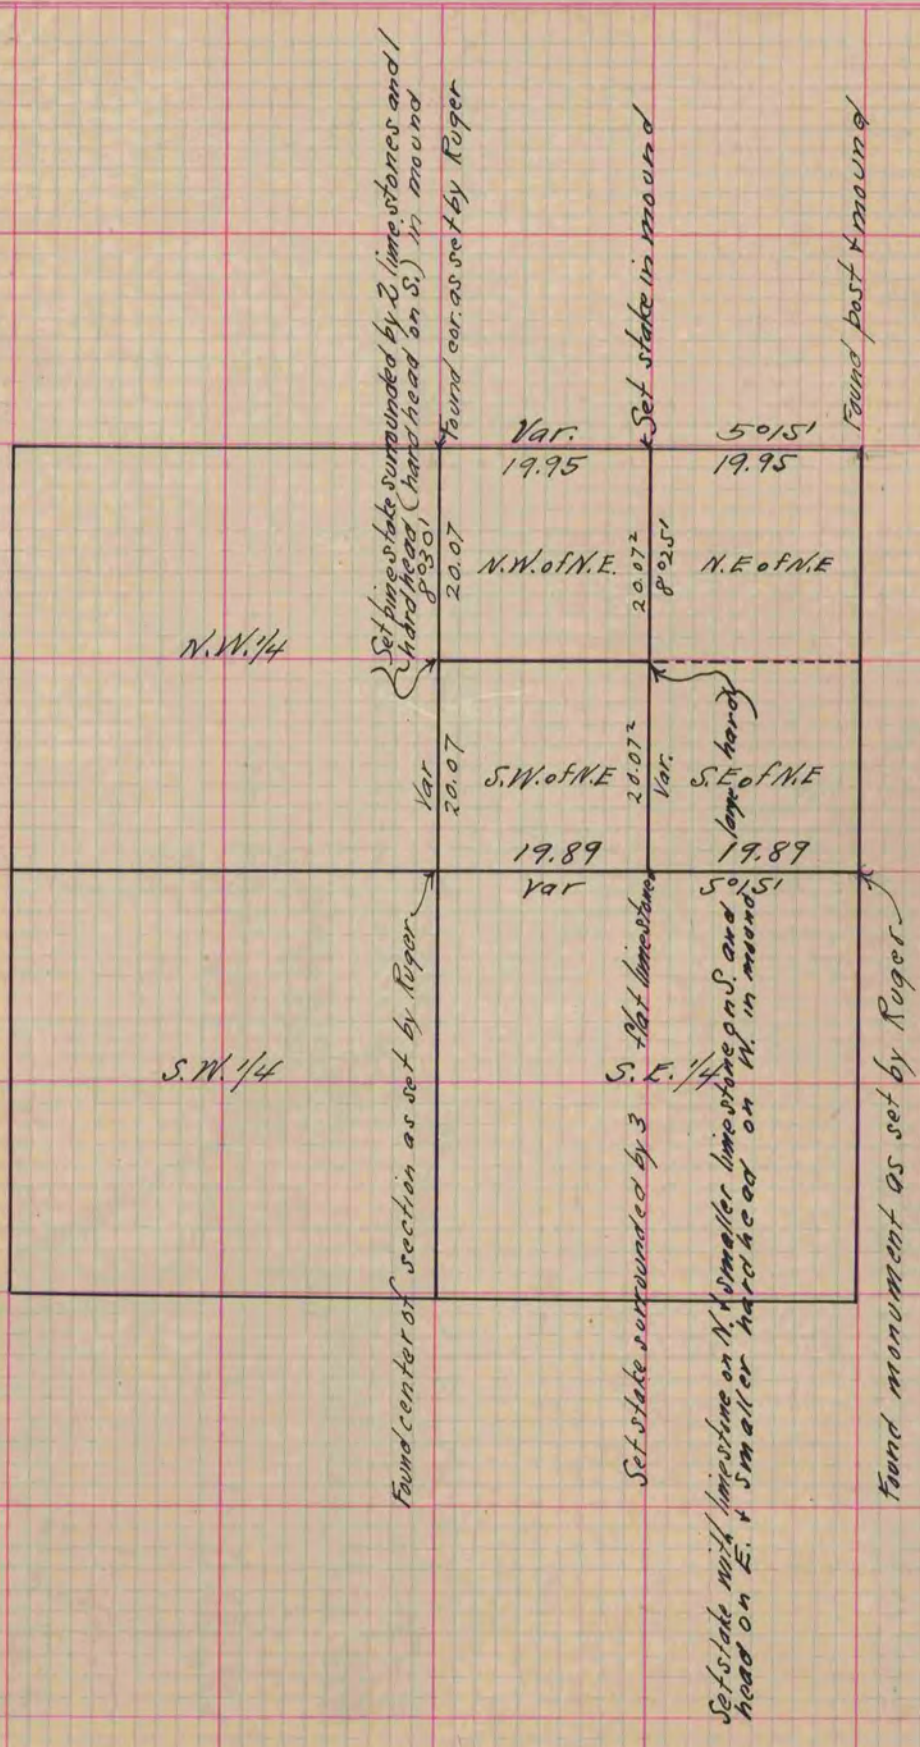 Set pine stake surrounded by 2 limestones and 1
hard head (hard head on S.) in mound
Found cor. as set by Ruger
Set stake in mound
Found post + mound
Var. 5°15'
19.95 19.95
8°30'
20.07
N.W. of N.E.
20.07²
8°25'
N.E of N.E
N.W. 1/4
Var
20.07
S.W. of N.E
20.07²
Var.
S.E of N.E
19.89 19.89
Var 5°15'
Found center of section as set by Ruger
S.W. 1/4
S.E. 1/4
Set stake surrounded by 3 flat limestones
Set stake with limestone on N. + smaller limestone on S. and large hard
head on E. + smaller hard head on W. in mound
Found monument as set by Ruger